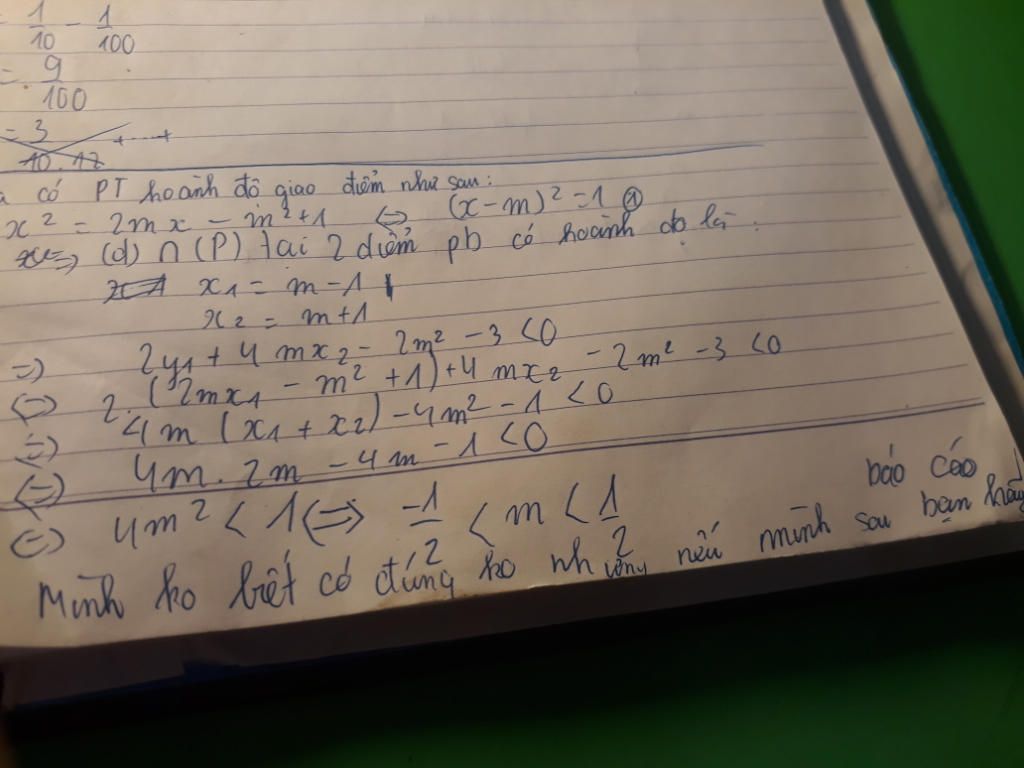 = 1/10 - 1/100
= 9/100
= 3/10.17
a có PT hoành độ giao điểm như sau:
x² = 2mx - m² + 1 ⇔ (x - m)² = 1 ①
⇒ (d) ∩ (P) tại 2 điểm pb có hoành độ là :
x₁ = m - 1
x₂ = m + 1
=) 2y₁ + 4mx₂ - 2m² - 3 < 0
⇔ 2.(2mx₁ - m² + 1) + 4mx₂ - 2m² - 3 < 0
⇔ 4m (x₁ + x₂) - 4m² - 1 < 0
⇔ 4m. 2m - 4m - 1 < 0
⇔ 4m² < 1 ⇔ -1/2 < m < 1/2
Mình ko biết có đúng ko nhưng nếu mình sau bạn hãy
báo cáo